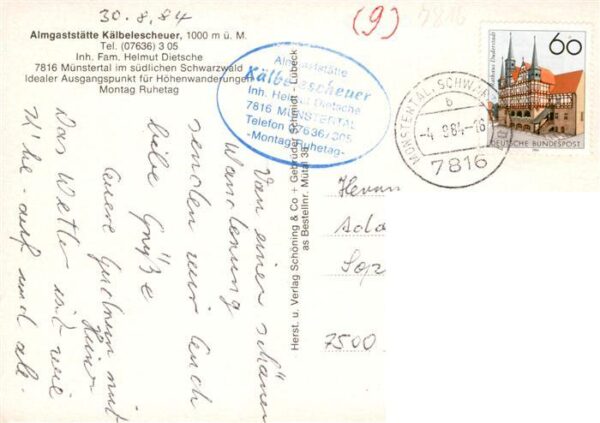 30.8.84
(9)
7816
Almgaststätte Kälbelescheuer, 1000 m ü. M.
Tel. (07636) 3 05
Inh. Fam. Helmut Dietsche
7816 Münstertal im südlichen Schwarzwald
Idealer Ausgangspunkt für Höhenwanderungen
Montag Ruhetag
Almgaststätte
Kälbelescheuer
Inh. Helmut Dietsche
7816 MÜNSTERTAL
Telefon 07636/305
-Montag Ruhetag-
MÜNSTERTAL, SCHWARZW
b
-4. 9.84.-16
7816
60
Rathaus Duderstadt
DEUTSCHE BUNDESPOST
Von einer schönen
Wanderung
senden wir Euch
liebe Grüße
Euere
mit
Das Wetter ist wie
auf und ab.
Herst. u. Verlag Schöning & Co + Gebrüder Schmidt, Lübeck
as Bestellnr. Mütal 38
Herrn
7500